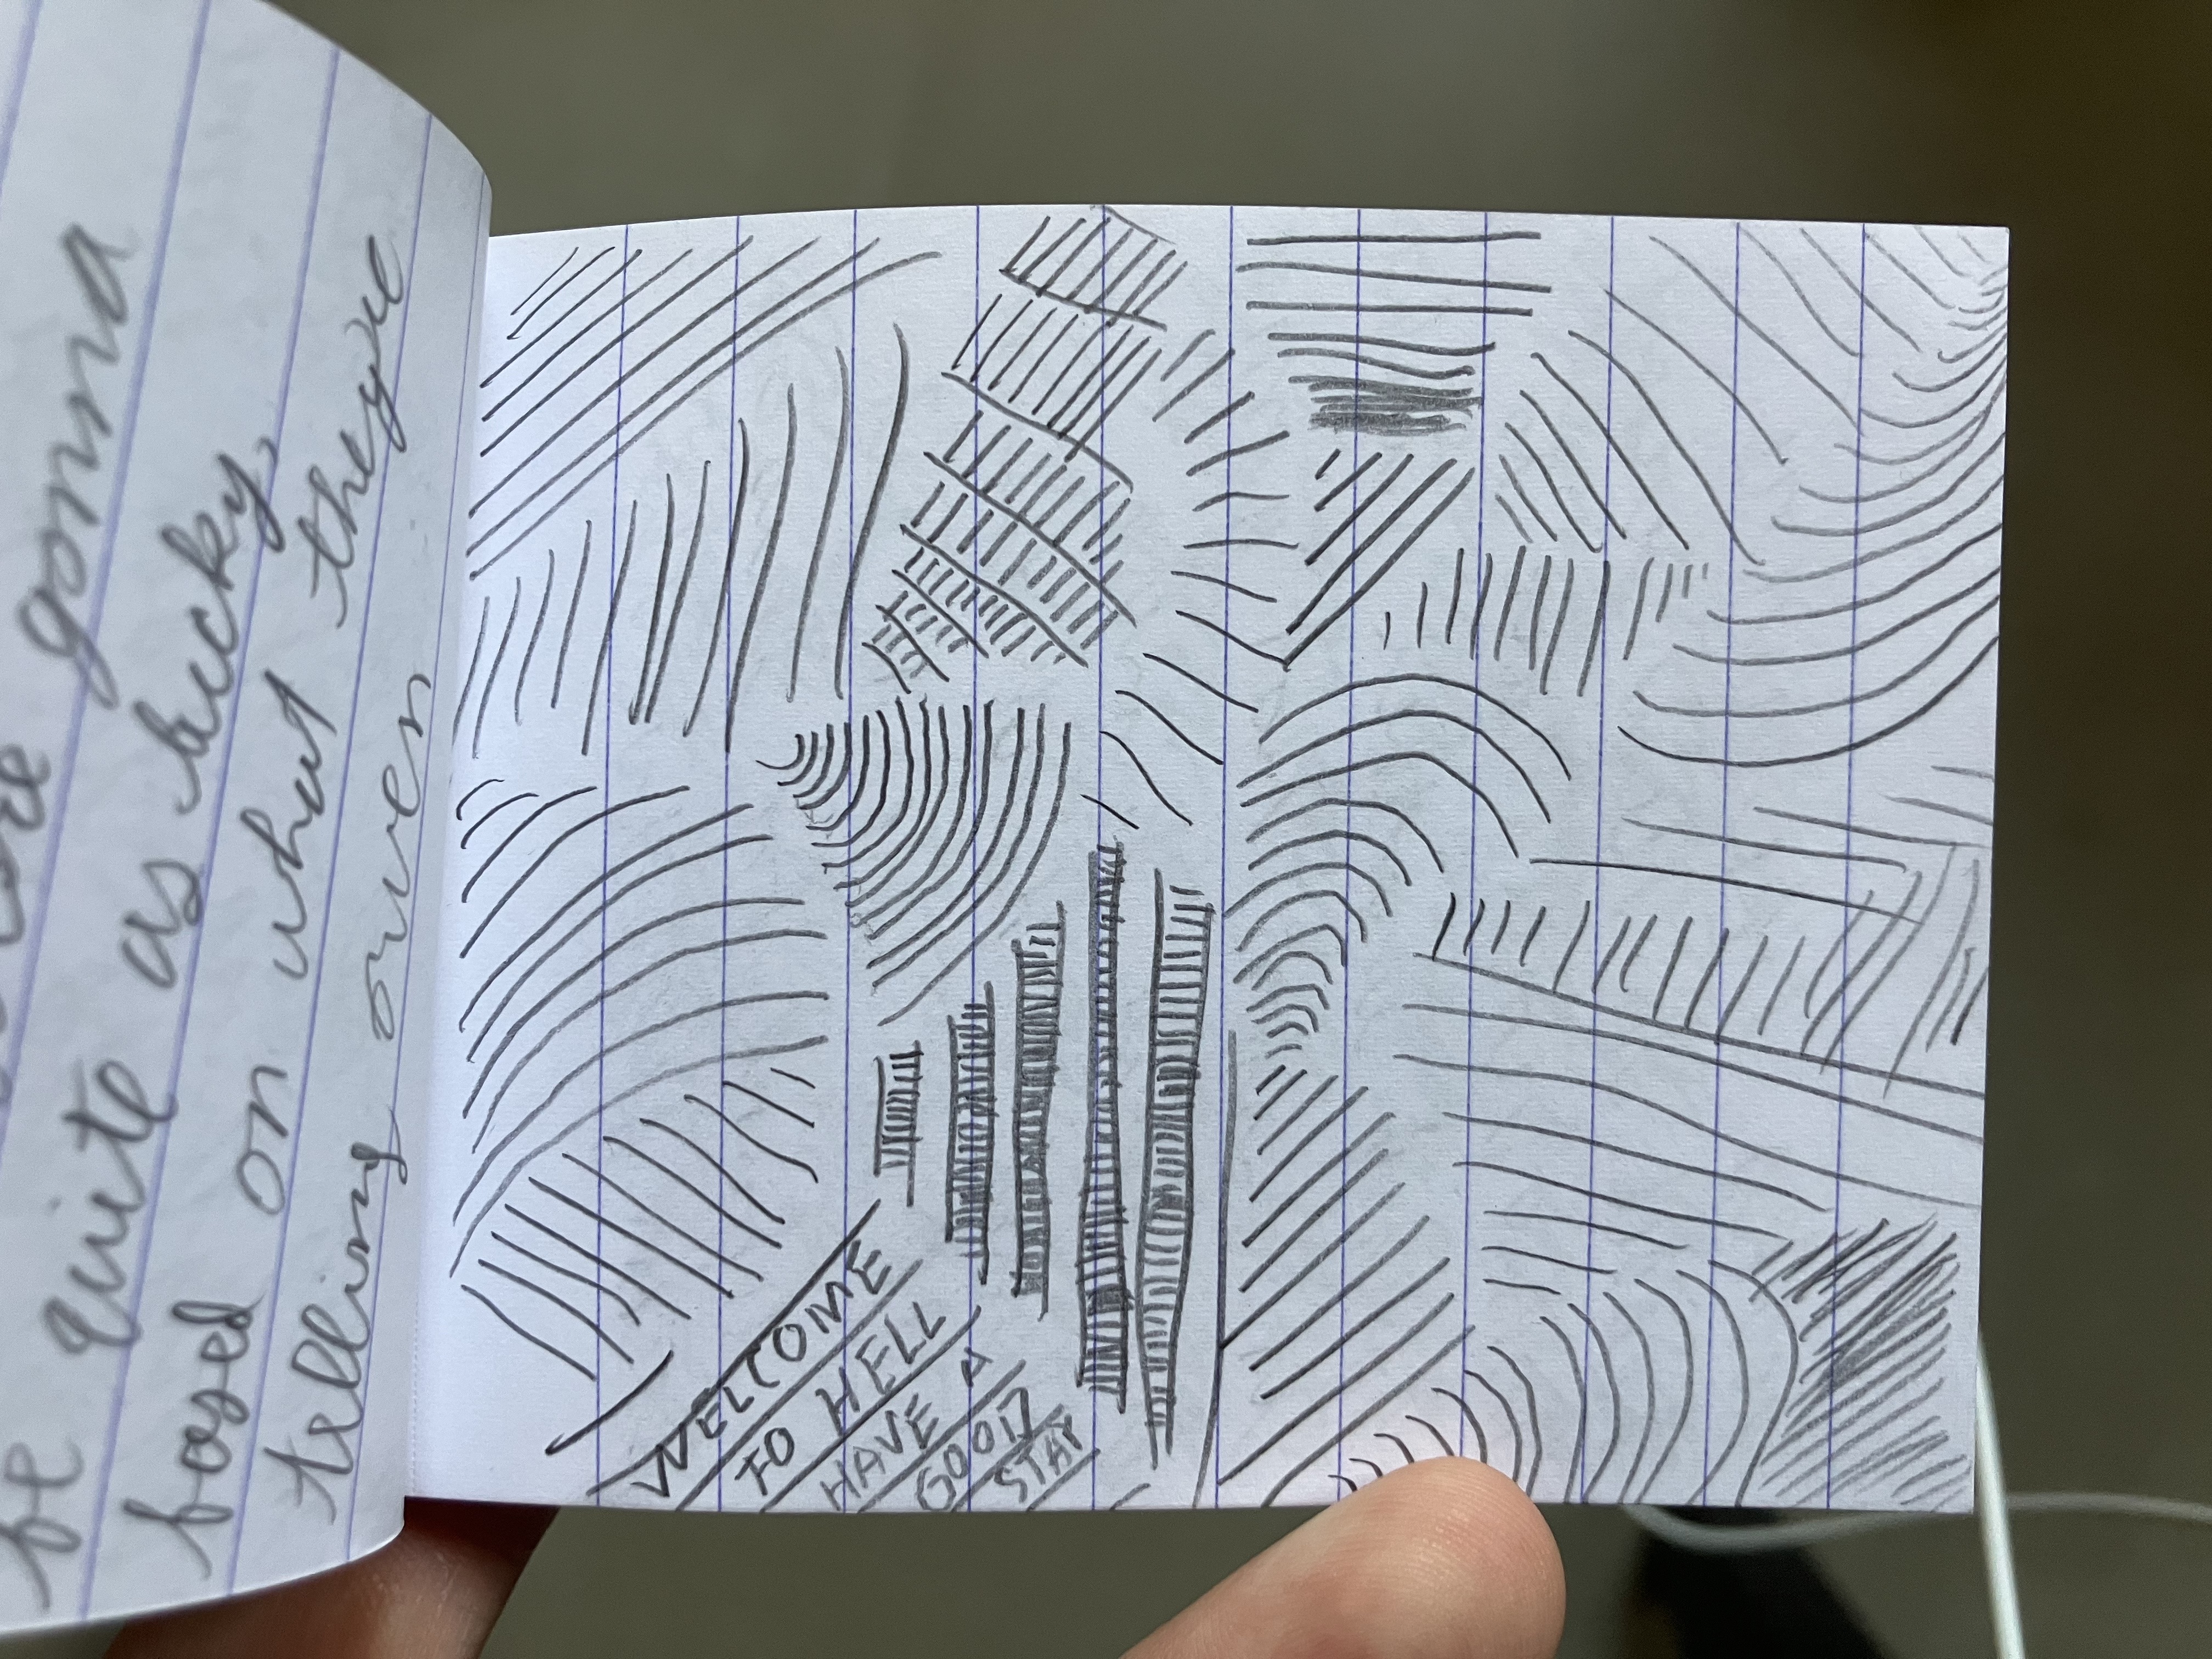 gonna
be quite as lucky,
based on what theyre
telling owen
WELCOME
TO HELL
HAVE A
GOOD
STAY